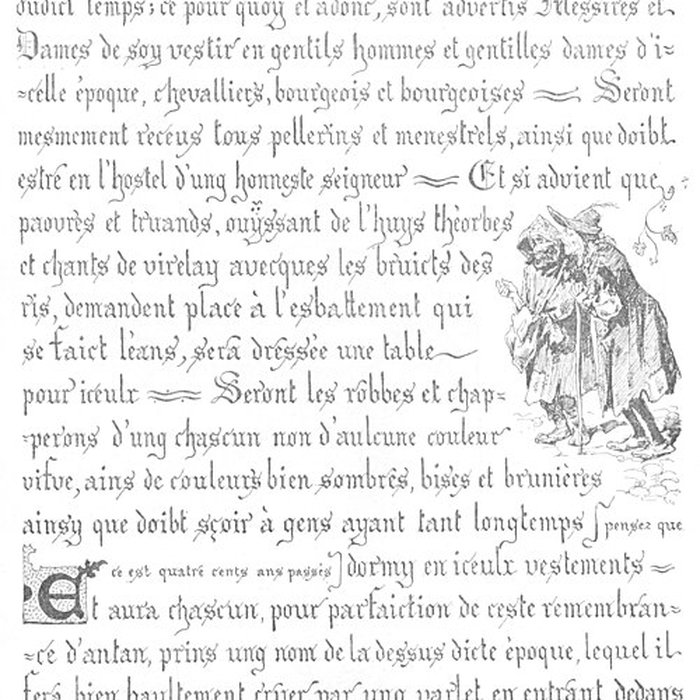 oudict temps; ce pour quoy et adonc, sont advertis Messires et
Dames de soy vestir en gentils hommes et gentilles dames d'i-
-celle époque, chevalliers, bourgeois et bourgeoises Seront
mesmement receus tous pellerins et menestrels, ainsi que doibt
estre en l'hostel d'ung honneste seigneur Et si advient que
paovres et truands, ouÿssant de l'huys théorbes
et chants de virelay avecques les bruicts des
ris, demandent place à l'esbattement qui
se faict léans, sera dressée une table
pour iceulx Seront les robbes et chap-
-perons d'ung chascun non d'aulcune couleur
vifve, ains de couleurs bien sombres, bises et brunières
ainsy que doibt sçoir à gens ayant tant longtemps [pensez que
ce est quatre cents ans passés] dormy en iceulx vestements
Et aura chascun, pour parfaiction de ceste remembran-
-ce d'antan, prins ung nom de la dessus dicte époque, lequel il
fera bien haultement cryer par ung varlet en entrant dedans